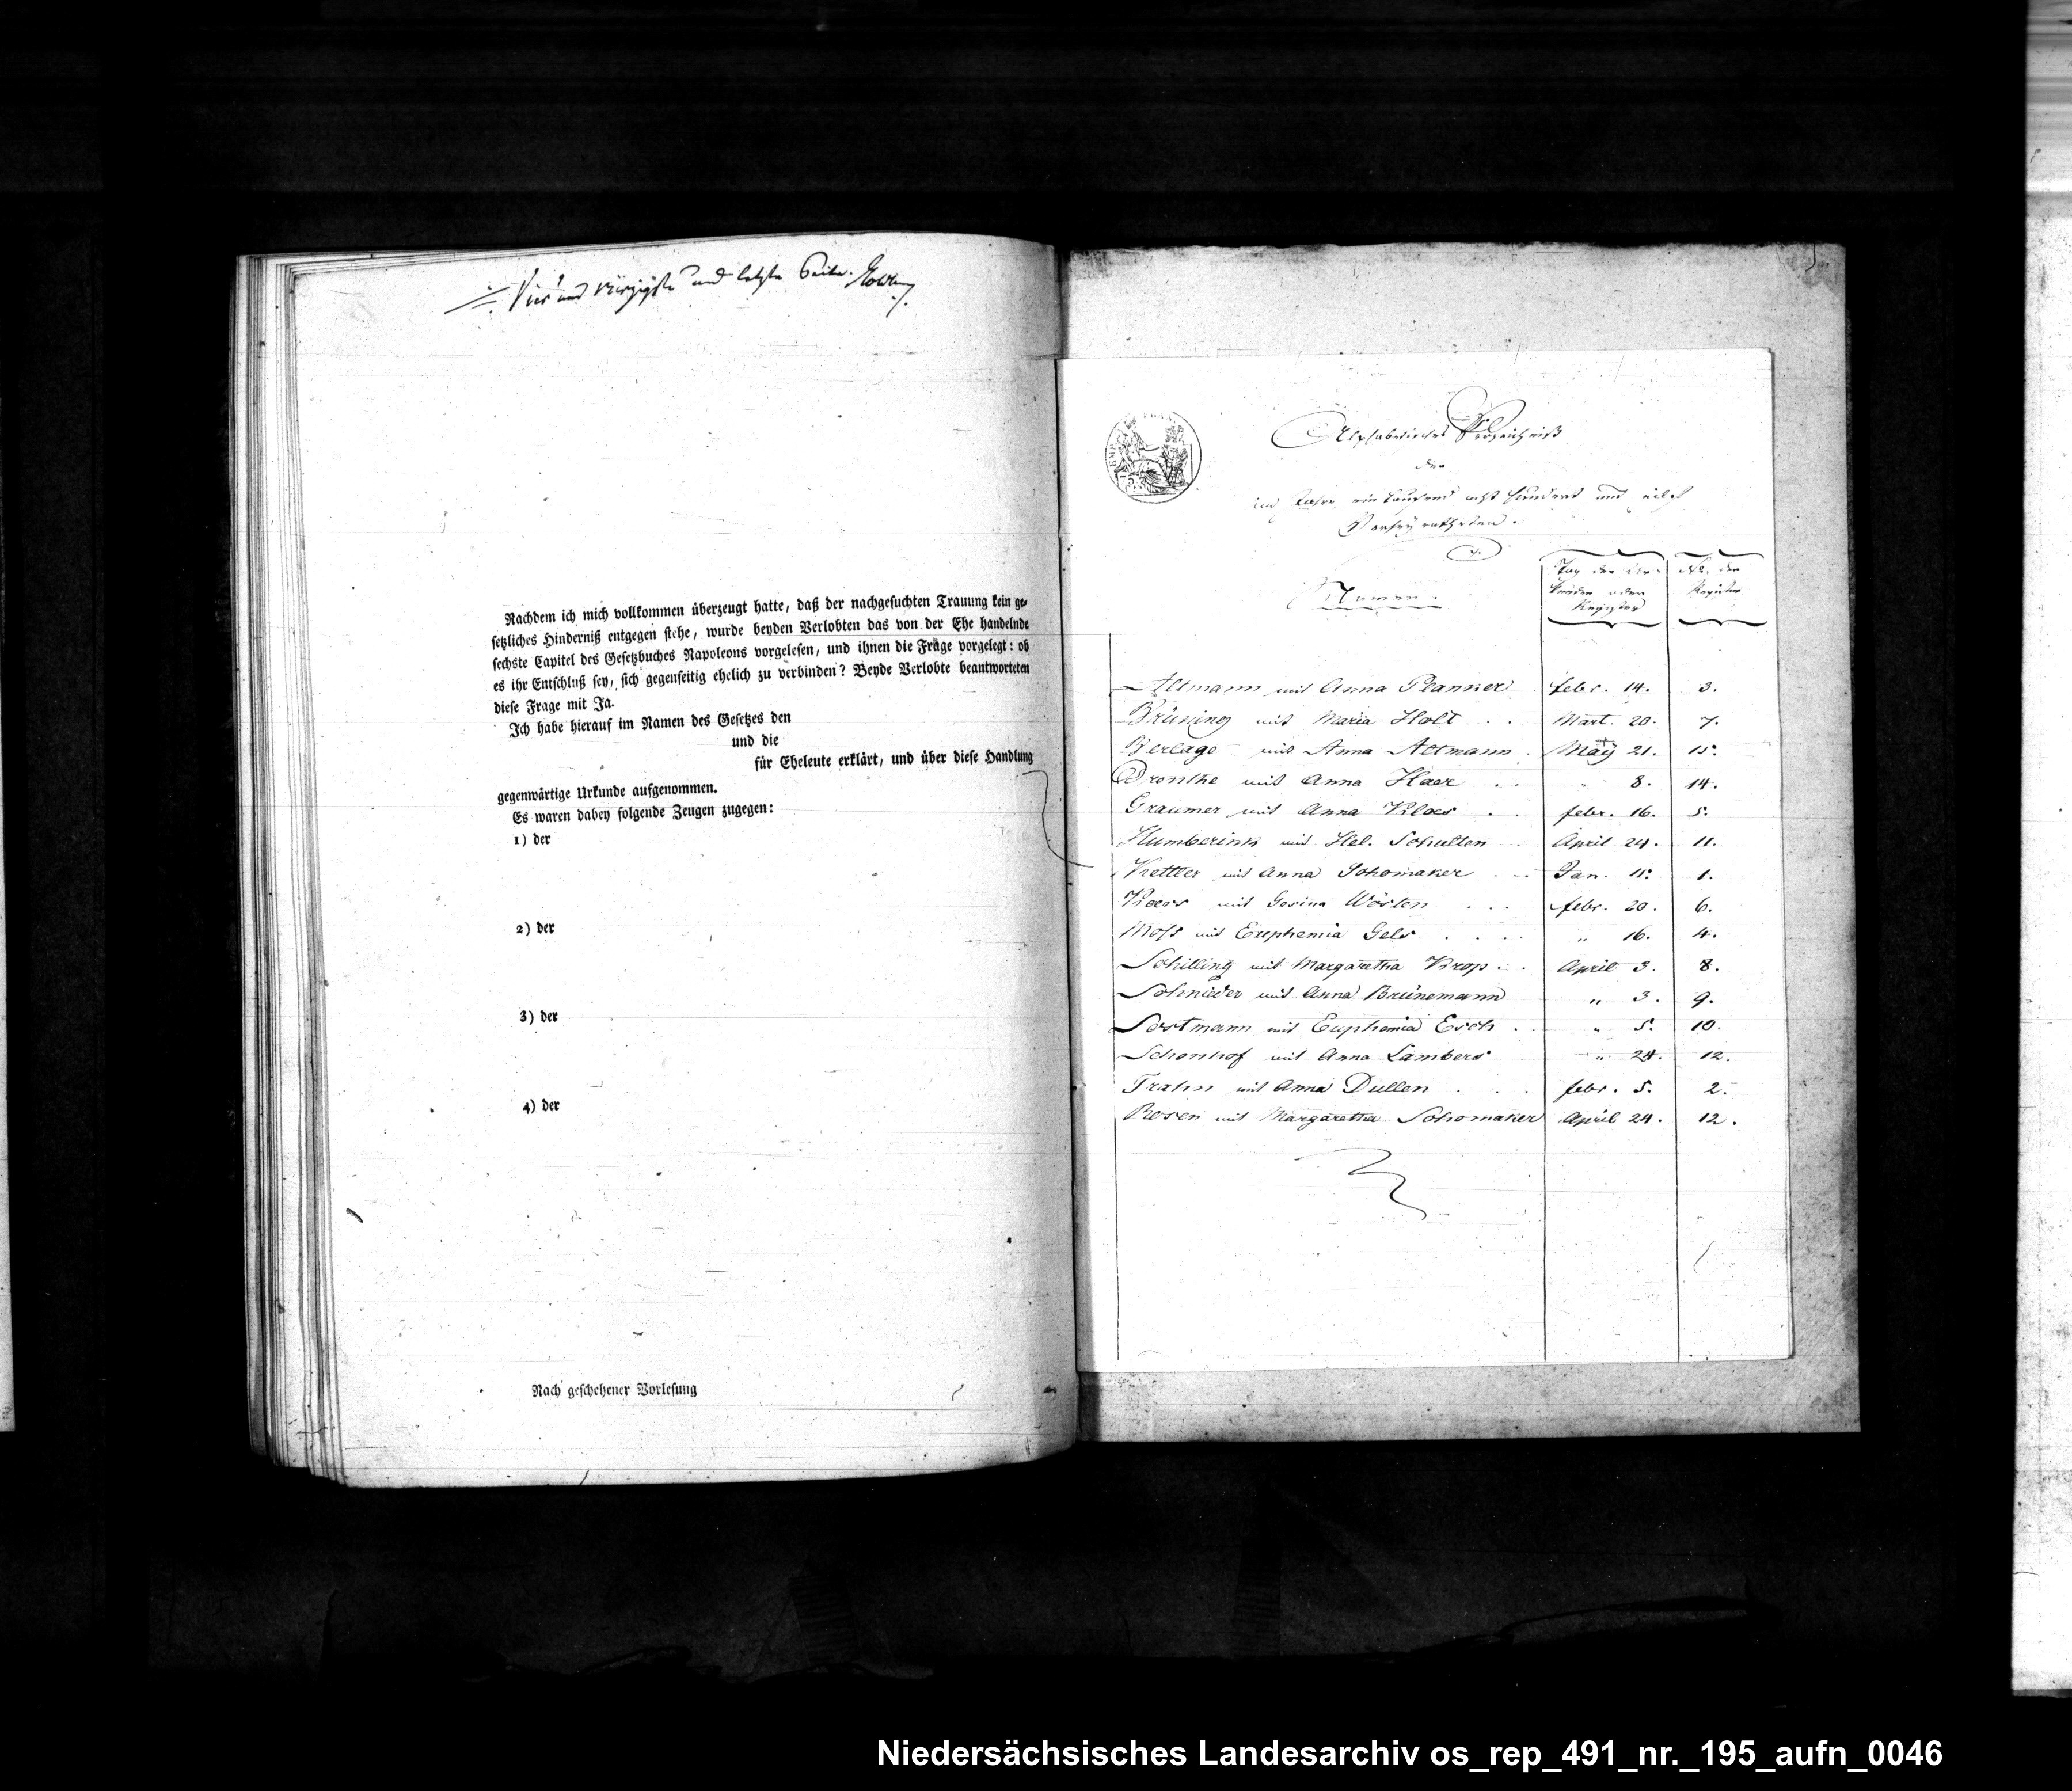 Vier und vierzigste und letzte Seite.
Nachdem ich mich vollkommen überzeugt hatte, daß der nachgesuchten Trauung kein ge-
setzliches Hinderniß entgegen stehe, wurde beyden Verlobten das von der Ehe handelnde
sechste Capitel des Gesetzbuches Napoleons vorgelesen, und ihnen die Frage vorgelegt: ob
es ihr Entschluß sey, sich gegenseitig ehelich zu verbinden? Beyde Verlobte beantworteten
diese Frage mit Ja.
Ich habe hierauf im Namen des Gesetzes den
und die
für Eheleute erklärt, und über diese Handlung
gegenwärtige Urkunde aufgenommen.
Es waren dabey folgende Zeugen zugegen:
1) der
2) der
3) der
4) der
Nach geschehener Vorlesung
Alphabetisches Verzeichniß
der
im Jahre ein tausend acht hundert und eilf
Verheyratheten.
Namen.
Tag der Ur-
kunden oder
Register
No. der
Register
Altmann mit Anna Planker febr. 14. 3.
Brüning mit Maria Holt . . Mart. 20. 7.
Berlage mit Anna Altmann . May 21. 15.
Dronthe mit Anna Haer . . " 8. 14.
Graumer mit Anna Kloes . . febr. 16. 5.
Humberink mit Hel. Schulten April 24. 11.
Kettler mit Anna Schomaker . . Jan. 15. 1.
mit Gesina Wösten . . . febr. 20. 6.
Moss mit Euphemia Gels . . . . " 16. 4.
Schilling mit Margaretha Krop . . April 3. 8.
Schnieder mit Anna Brünemann " 3. 9.
Sostmann mit Euphemia Esch . " 5. 10.
Schonhof mit Anna Lambers " 24. 12.
Trahn mit Anna Dullen . . . febr. 5. 2.
Rosen mit Margaretha Schomaker April 24. 12.
Niedersächsisches Landesarchiv os_rep_491_nr._195_aufn_0046